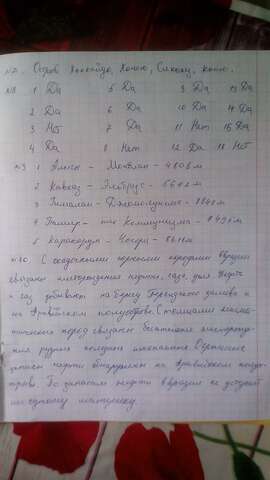 №7. Остров Хоккайдо, Хонсю, Сикоку, Кюсю.
№8 1 Да 5 Да 9 Да 13 Да
2 Да 6 Да 10 Да
3 Нет 7 Да 11 Нет 15 Да
4 Да 8 Нет 12 Да 16 Нет
№9 1 Альпы – Монблан – 4808 м
2 Кавказ – Эльбрус – 5642 м
3 Гималаи – Джомолунгма – 8848 м
4 Памир – пик Коммунизма – 7495 м
5 Каракорум – Чогори – 8611 м
№10. С осадочными горными породами Евразии
связаны месторождения нефти, газа, угля. Нефть
и газ добывают на берегу Персидского залива и
на Аравийском полуострове. С
пород связаны
рудные полезные ископаемые
запасы нефти обнаружены на Аравийском полуос-
трове. По запасам нефти Евразия не уступает
ни одному материку.